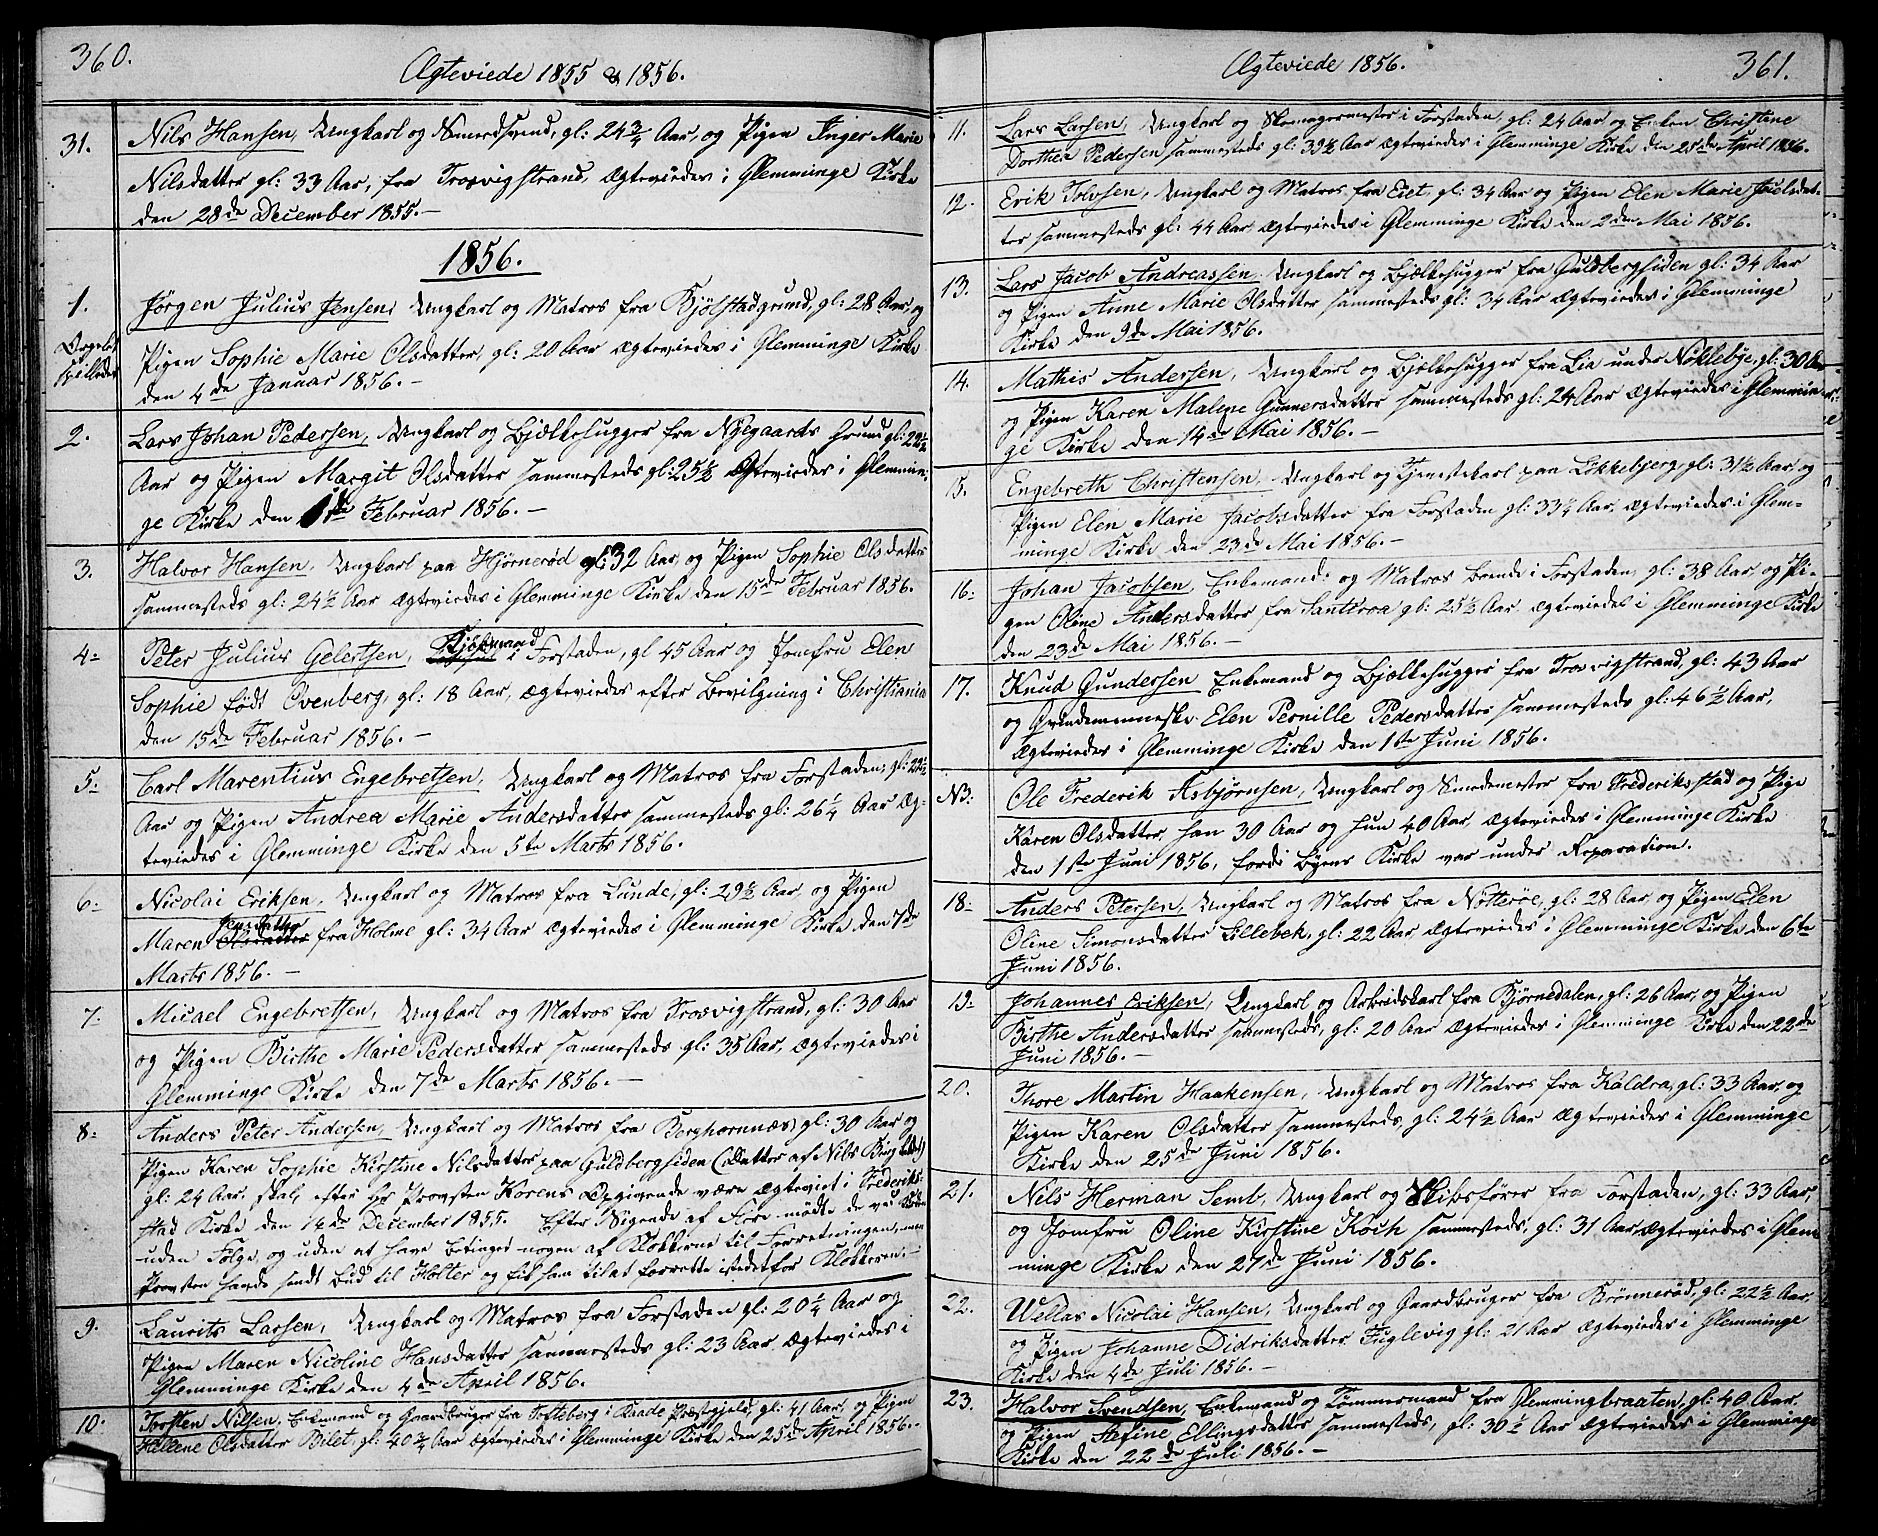 360.
Ægteviede 1855 & 1856.
31. Nils Hansen, Ungkarl og Smedsvend, gl: 24 3/4 Aar, og Pigen Inger Marie
Nilsdatter gl: 33 Aar, fra Trosvigstrand, Ægteviedes i Glemminge Kirke
den 28de December 1855.—
1856.
1. Jörgen Julius Jensen, Ungkarl og Matros fra Kjölstadgrund, gl: 28 Aar, og
Orgelet spilledes
Pigen Sophie Marie Olsdatter, gl: 20 Aar Ægteviedes i Glemminge Kirke
den 4de Januar 1856.—
2. Lars Johan Pedersen, Ungkarl og Bjælkehugger fra Nÿegaards Grund gl: 22½
Aar og Pigen Margit Olsdatter sammesteds gl: 25½ Ægteviedes i Glemmin-
ge Kirke den 1ste Februar 1856.—
3. Halvor Hansen, Ungkarl paa Hjörnerød gl: 32 Aar, og Pigen Sophie Olsdatter
sammesteds gl: 24½ Aar Ægteviedes i Glemminge Kirke den 15de Februar 1856.
4. Peter Julius Gelertsen, Kjöbmand i Forstaden, gl 45 Aar og Jomfru Elen
Sophie födt Ovenberg, gl: 18 Aar, Ægteviedes efter Bevilgning i Christiania
den 15de Februar 1856.—
5. Carl Marentius Engebretsen, Ungkarl og Matros fra Forstaden, gl: 22½
Aar og Pigen Andrea Marie Andersdatter sammesteds gl: 26¼ Aar Æg-
teviedes i Glemminge Kirke den 5te Marts 1856.
6. Nicolai Eriksen, Ungkarl og Matros fra Lunde, gl: 29½ Aar, og Pigen
Maren Olsdatter Jensdatter fra Holme gl: 34 Aar Ægteviedes i Glemminge Kirke, den 7de
Marts 1856.—
7. Micael Engebretsen, Ungkarl og Matros fra Trosvigstrand, gl: 30 Aar
og Pigen Birthe Marie Pedersdatter sammesteds gl: 35 Aar, Ægteviedes i
Glemminge Kirke den 7de Marts 1856.—
8. Anders Peter Andersen, Ungkarl og Matros fra Berghornnæs, gl: 30 Aar og
Pigen Karen Sophie Kirstine Nilsdatter paa Guldbergsiden (Datter af Nils
gl: 24 Aar, skal, efter Hr Provsten Korens Opgivende være Ægteviet i Frederik-
stad Kirke den 14de December 1855. Efter Sigende af Flere mödte de ved Kirken
uden Følge, og uden at have betinget nogen af Klokkerne til Forretningen, men
Provsten havde sendt Bud til Holter og fik ham til at forrette istedetfor Klokkeren.—
9. Laurits Larsen, Ungkarl og Matros fra Forstaden gl: 20¼ Aar og
Pigen Maren Nicoline Hansdatter sammesteds gl: 23 Aar Ægteviedes i
Glemminge Kirke den 4de April 1856.
10. Torsten Nilsen, Enkemand og Gaardbruger fra Tofteberg i Raade Præstegjeld, gl: 41 Aar, og Pigen
Hellene Olsdatter Bilet, gl: 40¾ Aar Ægteviedes i Glemminge Kirke den 25de April 1856.—
Ægteviede 1856.
361.
11. Lars Larsen, Ungkarl og Skomagermester i Forstaden, gl: 24 Aar og Enken Christine
Dorthea Pedersen sammesteds gl: 39½ Aar Ægteviedes i Glemminge Kirke den 25de April 1856.
12. Erik Tolvsen, Ungkarl og Matros fra Eiet, gl: 34 Aar og Pigen Elen Marie Joelsdat-
ter sammesteds gl: 44 Aar, Ægteviedes i Glemminge Kirke den 2den Mai 1856.
13. Lars Jacob Andreassen, Ungkarl og Bjælkehugger fra Guldbergsiden gl: 34 Aar
og Pigen Anne Marie Olsdatter sammesteds gl: 34 Aar Ægteviedes i Glemminge
Kirke den 9de Mai 1856.
14. Mathis Andersen, Ungkarl og Bjælkehugger fra Lia under Nöklebye, gl: 30 Aar
og Pigen Karen Malene Gunnersdatter sammesteds gl: 24 Aar Ægteviedes i Glemmin-
ge Kirke den 14de Mai 1856.—
15. Engebreth Christensen, Ungkarl og Tjenestekarl paa Lökkebjerg, gl: 31½ Aar, og
Pigen Elen Marie Jacobsdatter fra Forstaden gl: 33¼ Aar, Ægteviedes i Glem-
minge Kirke den 23de Mai 1856.—
16. Johan Jacobsen, Enkemand og Matros boende i Forstaden, gl: 38 Aar, og Pi-
gen Oline Andersdatter fra Santeroa gl: 25½ Aar Ægteviedes i Glemminge Kirke
den 23de Mai 1856.—
17. Knud Gundersen Enkemand og Bjælkehugger fra Trosvigstrand, gl: 43 Aar
og Qvindemenneske Elen Pernille Pedersdatter sammesteds gl: 46½ Aar,
Ægteviedes i Glemminge Kirke den 1ste Juni 1856.—
NB: Ole Frederik Asbjörnsen, Ungkarl og Smedemester fra Frederiksstad og Pige
Karen Olsdatter, han 30 Aar og hun 40 Aar, Ægteviedes i Glemminge Kirke
den 1ste Juni 1856, fordi Byens Kirke var under Reparation.
18. Anders Petersen, Ungkarl og Matros fra Nötterøe, gl: 28 Aar, og Pigen Elen
Oline Simonsdatter Lillebek, gl: 22 Aar Ægteviedes i Glemminge Kirke den 6te
Juni 1856.
19. Johannes Eriksen, Ungkarl og Arbeidskarl fra Bjørnedalen, gl: 26 Aar, og Pigen
Birthe Andersdatter sammesteds, gl: 20 Aar Ægteviedes i Glemminge Kirke den 22de
Juni 1856.—
20. Thore Martin Haakensen, Ungkarl og Matros fra Kaldra, gl: 33 Aar, og
Pigen Karen Olsdatter sammesteds, gl: 24½ Aar Ægteviedes i Glemminge
Kirke den 25de Juni 1856.
21. Nils Herman Semb, Ungkarl og Skibsfører fra Forstaden, gl: 33 Aar,
og Jomfru Oline Kirstine Koch sammesteds, gl: 31 Aar, Ægteviedes i Glem-
minge Kirke den 27de Juni 1856.
22. Wellas Nicolai Hansen, Ungkarl og Gaardbruger fra Brönnerød, gl: 22½ Aar,
og Pigen Johanne Didriksdatter Figlevig gl: 21 Aar Ægteviedes i Glemminge
Kirke den 4de Juli 1856.—
23. Halvor Svendsen, Enkemand og Tömmermand fra Glemmingbraaten, gl: 40 Aar,
og Pigen Stefine Ellingsdatter sammesteds, gl: 30½ Aar Ægteviedes i Glemminge
Kirke den 22de Juli 1856.—